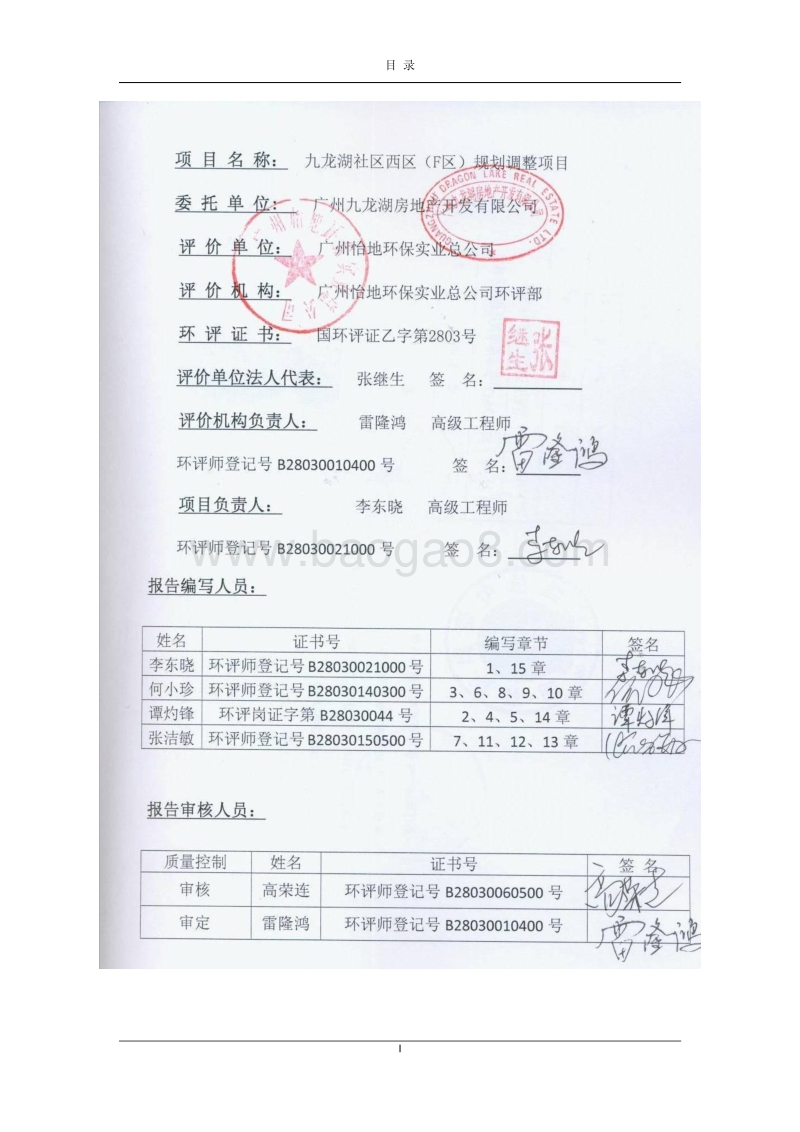 目 录
项目名称： 九龙湖社区西区（F区）规划调整项目
委托单位： 广州九龙湖房地产开发有限公司
GUANGZHOU DRAGON LAKE REAL ESTATE LTD.
评价单位： 广州怡地环保实业总公司
评价机构： 广州怡地环保实业总公司环评部
环评证书： 国环评证乙字第2803号
张继生
评价单位法人代表： 张继生 签 名：
评价机构负责人： 雷隆鸿 高级工程师
环评师登记号 B28030010400 号 签 名：雷隆鸿
项目负责人： 李东晓 高级工程师
环评师登记号 B28030021000 号 签 名：李东晓
www.baogao8.com
报告编写人员：
姓名 证书号 编写章节 签名
李东晓 环评师登记号 B28030021000 号 1、15 章 李东晓
何小珍 环评师登记号 B28030140300 号 3、6、8、9、10 章
谭灼锋 环评岗证字第 B28030044 号 2、4、5、14 章 谭灼锋
张洁敏 环评师登记号 B28030150500 号 7、11、12、13 章
报告审核人员：
质量控制 姓名 证书号 签名
审核 高荣连 环评师登记号 B28030060500 号 高荣连
审定 雷隆鸿 环评师登记号 B28030010400 号 雷隆鸿
I